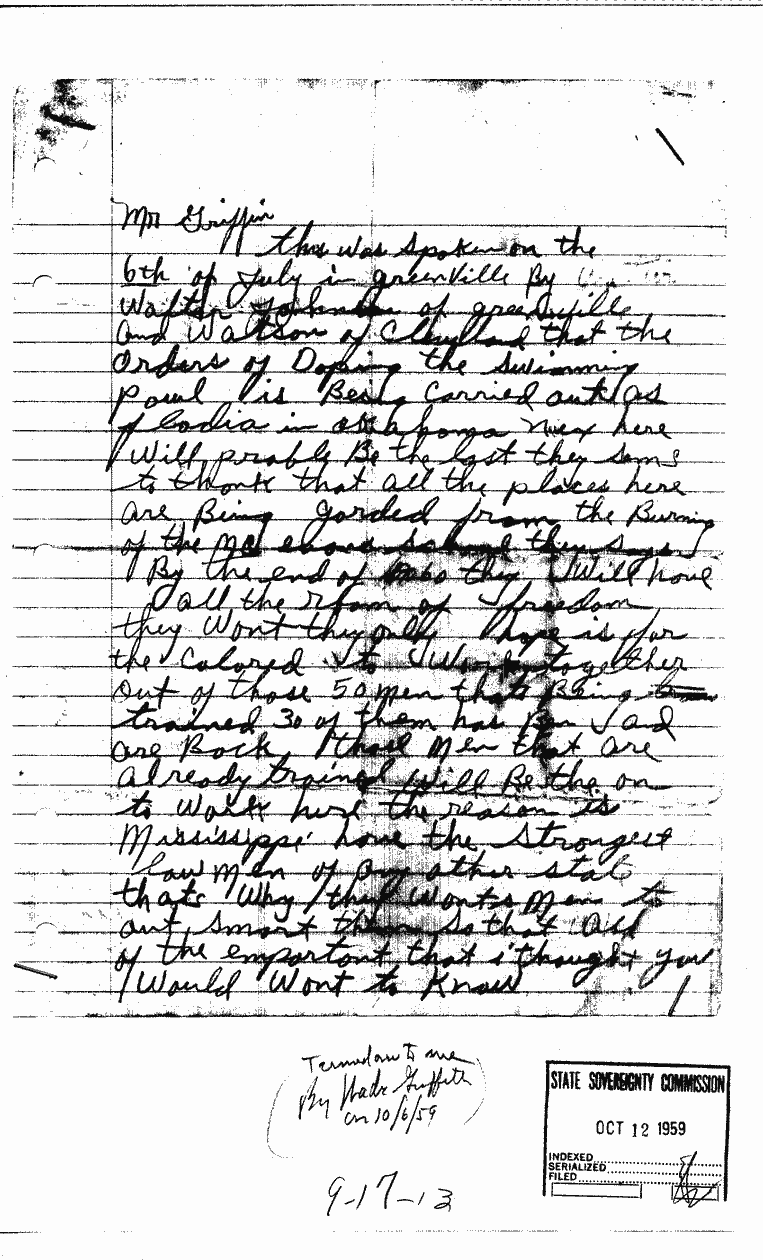 Mr Griffin
this was spoken on the
6th of July in greenville By
Walter Johnson of greenville
and Watson of Cleveland that the
orders of Doping the swimming
powl is Being carried out as
in oklahoma here
Will prable Be the last they sems
to thonk that all the places here
are Being gorded from the Burning
of the they says
By the end of they Will have
all the of freedom
they Wont they only hope is for
the Colored to Work together
out of those 50 men thats Being
trained 30 of them has Ben and
are Back thoes Men that are
already trained Will Be the on
to Work here the reason is
Mississippi have the strongest
law Men of any other stat
thats Why they Wonts Men to
out smart them so that all
of the emportont that i thought you
Would Wont to Know
1
Turned over to me
By Griffith
on 10/6/59
STATE SOVEREIGNTY COMMISSION
OCT 12 1959
INDEXED
SERIALIZED
FILED
9-17-13